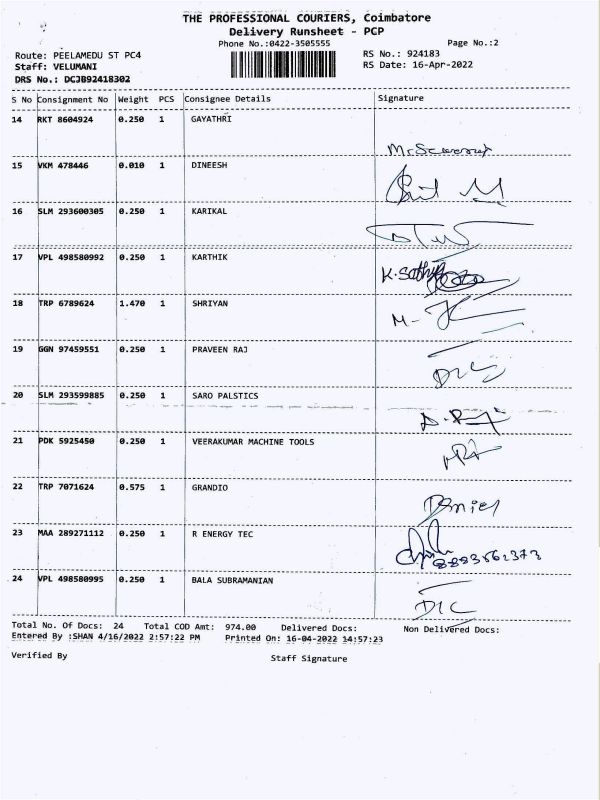 THE PROFESSIONAL COURIERS, Coimbatore
Delivery Runsheet - PCP
Phone No.:0422-3505555
Page No.:2
Route: PEELAMEDU ST PC4
RS No.: 924183
Staff: VELUMANI
RS Date: 16-Apr-2022
DRS No.: DCJB92418302
S No Consignment No Weight PCS Consignee Details Signature
14 RKT 8604924 0.250 1 GAYATHRI
15 VKM 478446 0.010 1 DINEESH
16 SLM 293600305 0.250 1 KARIKAL
17 VPL 498580992 0.250 1 KARTHIK
K. Sathi
18 TRP 6789624 1.470 1 SHRIYAN
19 GGN 97459551 0.250 1 PRAVEEN RAJ
20 SLM 293599885 0.250 1 SARO PALSTICS
21 PDK 5925450 0.250 1 VEERAKUMAR MACHINE TOOLS
22 TRP 7071624 0.575 1 GRANDIO
23 MAA 289271112 0.250 1 R ENERGY TEC
24 VPL 498580995 0.250 1 BALA SUBRAMANIAN
Total No. Of Docs: 24 Total COD Amt: 974.00 Delivered Docs: Non Delivered Docs:
Entered By :SHAN 4/16/2022 2:57:22 PM Printed On: 16-04-2022 14:57:23
Verified By Staff Signature